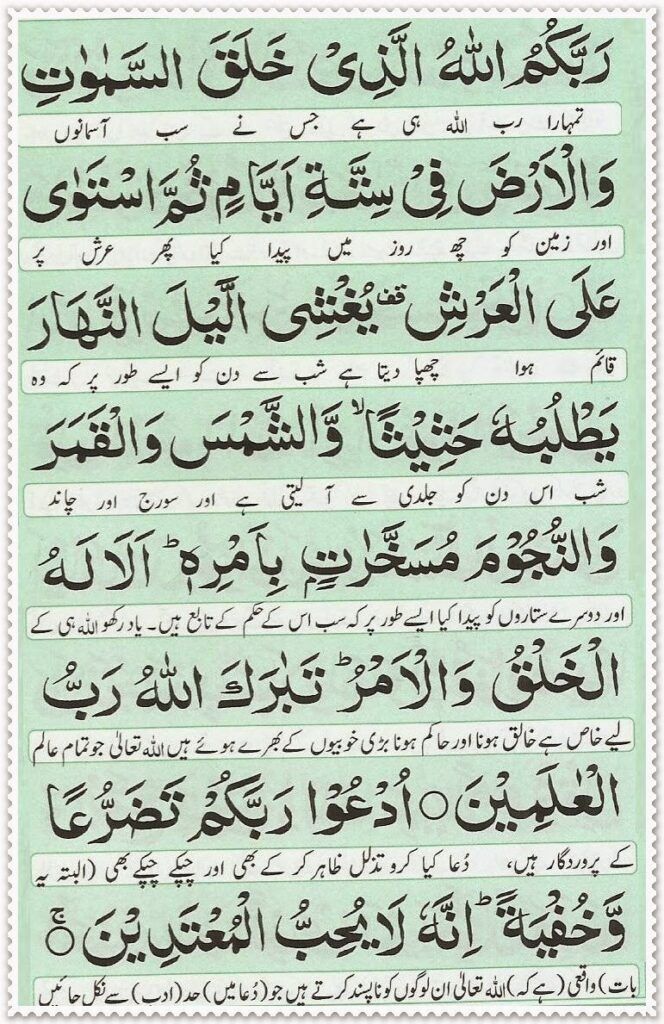 رَبَّكُمُ اللّٰهُ الَّذِیْ خَلَقَ السَّمٰوٰتِ
تمہارا رب اللہ ہی ہے جس نے سب آسمانوں
وَالْاَرْضَ فِیْ سِتَّةِ اَیَّامٍ ثُمَّ اسْتَوٰی
اور زمین کو چھ روز میں پیدا کیا پھر عرش پر
عَلَی الْعَرْشِ قف یُغْشِی الَّیْلَ النَّهَارَ
قائم ہوا چھپا دیتا ہے شب سے دن کو ایسے طور پر کہ وہ
یَطْلُبُهٗ حَثِیْثًا ۙ وَّالشَّمْسَ وَالْقَمَرَ
شب اس دن کو جلدی سے آ لیتی ہے اور سورج اور چاند
وَالنُّجُوْمَ مُسَخَّرٰتٍۭ بِاَمْرِهٖ ؕ اَلَا لَهُ
اور دوسرے ستاروں کو پیدا کیا ایسے طور پر کہ سب اس کے حکم کے تابع ہیں۔ یاد رکھو اللہ ہی کے
الْخَلْقُ وَالْاَمْرُ ؕ تَبٰرَكَ اللّٰهُ رَبُّ
لیے خاص ہے خالق ہونا اور حاکم ہونا بڑی خوبیوں کے بھرے ہوئے ہیں اللہ تعالیٰ جو تمام عالم
الْعٰلَمِیْنَ ○ اُدْعُوْا رَبَّكُمْ تَضَرُّعًا
کے پروردگار ہیں، دُعا کیا کرو تذلل ظاہر کر کے بھی اور چپکے چپکے بھی (البتہ یہ
وَّخُفْیَةً ؕ اِنَّهٗ لَا یُحِبُّ الْمُعْتَدِیْنَ ○ ۚ
بات) واقعی (ہے کہ) اللہ تعالیٰ ان لوگوں کو ناپسند کرتے ہیں جو (دُعا میں) حد (ادب) سے نکل جائیں